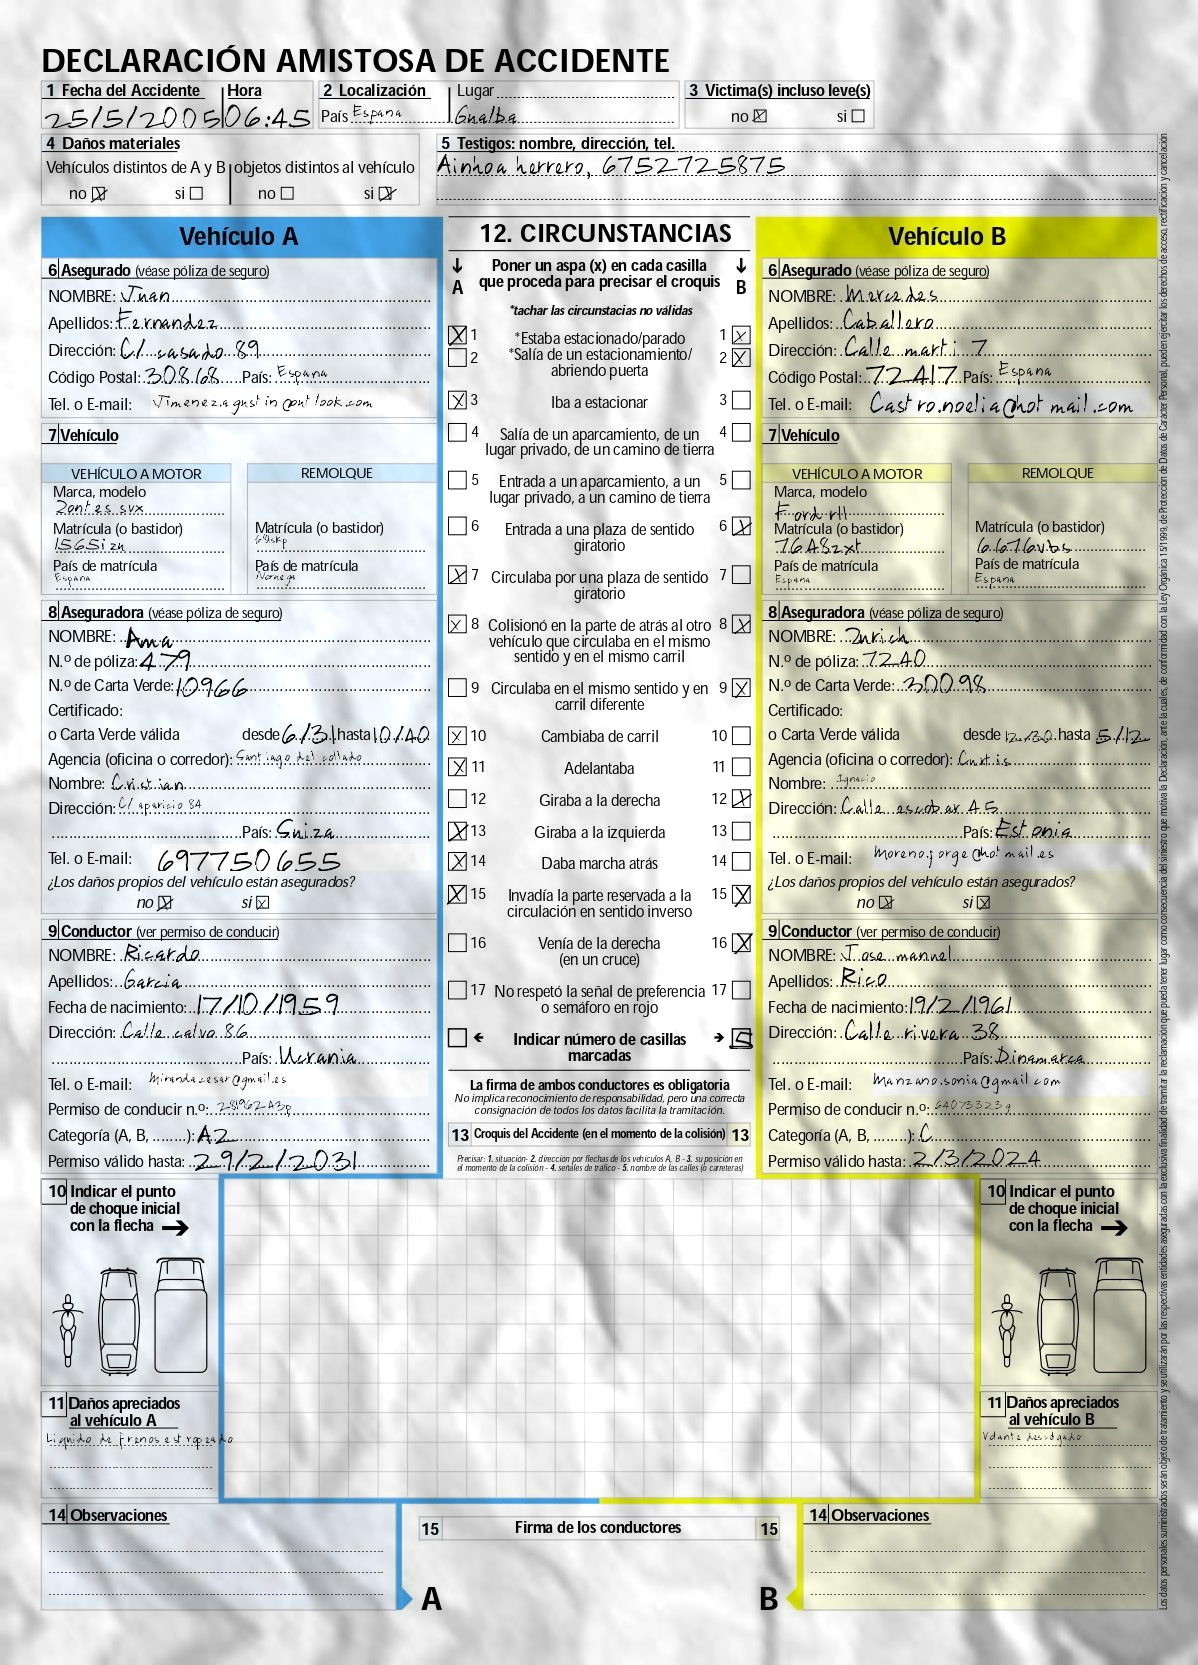 DECLARACIÓN AMISTOSA DE ACCIDENTE
1 Fecha del Accidente Hora
25/5/2005 06:45
2 Localización Lugar
País Espana Gualba
3 Victima(s) incluso leve(s)
no si
4 Daños materiales
Vehículos distintos de A y B objetos distintos al vehículo
no si no si
5 Testigos: nombre, dirección, tel.
Ainhoa herrero, 6752725875
Vehículo A
6 Asegurado (véase póliza de seguro)
NOMBRE: Juan
Apellidos: Fernandez
Dirección: C/ casado 89
Código Postal: 30868 País: Espana
Tel. o E-mail: Jimenez.agustin@outlook.com
7 Vehículo
VEHÍCULO A MOTOR REMOLQUE
Marca, modelo
Zontes svx
Matrícula (o bastidor) Matrícula (o bastidor)
1565izn
País de matrícula País de matrícula
Espana Noruega
8 Aseguradora (véase póliza de seguro)
NOMBRE: Ama
N.º de póliza: 479
N.º de Carta Verde: 10966
Certificado:
o Carta Verde válida desde 6/31 hasta 10/40
Agencia (oficina o corredor): Santiago del collado
Nombre: Cristian
Dirección: C/ aparicio 84
País: Suiza
Tel. o E-mail: 697750655
¿Los daños propios del vehículo están asegurados?
no si
9 Conductor (ver permiso de conducir)
NOMBRE: Ricardo
Apellidos: Garcia
Fecha de nacimiento: 17/10/1959
Dirección: Calle calvo 86
País: Ucrania
Tel. o E-mail: Mirandacesar@gmail.es
Permiso de conducir n.º: 28196243p
Categoría (A, B, ........): A2
Permiso válido hasta: 29/2/2031
12. CIRCUNSTANCIAS
Poner un aspa (x) en cada casilla
que proceda para precisar el croquis
A B
*tachar las circunstacias no válidas
1 *Estaba estacionado/parado 1
2 *Salía de un estacionamiento/ 2
abriendo puerta
3 Iba a estacionar 3
4 Salía de un aparcamiento, de un 4
lugar privado, de un camino de tierra
5 Entrada a un aparcamiento, a un 5
lugar privado, a un camino de tierra
6 Entrada a una plaza de sentido 6
giratorio
7 Circulaba por una plaza de sentido 7
giratorio
8 Colisionó en la parte de atrás al otro 8
vehículo que circulaba en el mismo
sentido y en el mismo carril
9 Circulaba en el mismo sentido y en 9
carril diferente
10 Cambiaba de carril 10
11 Adelantaba 11
12 Giraba a la derecha 12
13 Giraba a la izquierda 13
14 Daba marcha atrás 14
15 Invadía la parte reservada a la 15
circulación en sentido inverso
16 Venía de la derecha 16
(en un cruce)
17 No respetó la señal de preferencia 17
o semáforo en rojo
Indicar número de casillas
marcadas
La firma de ambos conductores es obligatoria
No implica reconocimiento de responsabilidad, pero una correcta
consignación de todos los datos facilita la tramitación.
13 Croquis del Accidente (en el momento de la colisión) 13
Precisar: 1. situación- 2. dirección por flechas de los vehículos A, B - 3. su posición en
el momento de la colisión - 4. señales de tráfico - 5. nombre de las calles (o carreteras)
Vehículo B
6 Asegurado (véase póliza de seguro)
NOMBRE: Mercedes
Apellidos: Caballero
Dirección: Calle marti 7
Código Postal: 72417 País: Espana
Tel. o E-mail: Castro.noelia@hotmail.com
7 Vehículo
VEHÍCULO A MOTOR REMOLQUE
Marca, modelo
Ford rll
Matrícula (o bastidor) Matrícula (o bastidor)
7648zxt 6676vbs
País de matrícula País de matrícula
Espana Espana
8 Aseguradora (véase póliza de seguro)
NOMBRE: Zurich
N.º de póliza: 7240
N.º de Carta Verde: 30098
Certificado:
o Carta Verde válida desde 12/30 hasta 5/12
Agencia (oficina o corredor): Curtis
Nombre: Ignacio
Dirección: Calle escobar 45
País: Estonia
Tel. o E-mail: Moreno.jorge@hotmail.es
¿Los daños propios del vehículo están asegurados?
no si
9 Conductor (ver permiso de conducir)
NOMBRE: Jose manuel
Apellidos: Rico
Fecha de nacimiento: 19/2/1961
Dirección: Calle rivera 38
País: Dinamarca
Tel. o E-mail: Manzano.sonia@gmail.com
Permiso de conducir n.º: 64073323g
Categoría (A, B, ........): C
Permiso válido hasta: 2/3/2024
10 Indicar el punto
de choque inicial
con la flecha
11 Daños apreciados
al vehículo A
Liquido de frenos estropeado
10 Indicar el punto
de choque inicial
con la flecha
11 Daños apreciados
al vehículo B
Volante descolgado
14 Observaciones
15 Firma de los conductores 15
A B
14 Observaciones